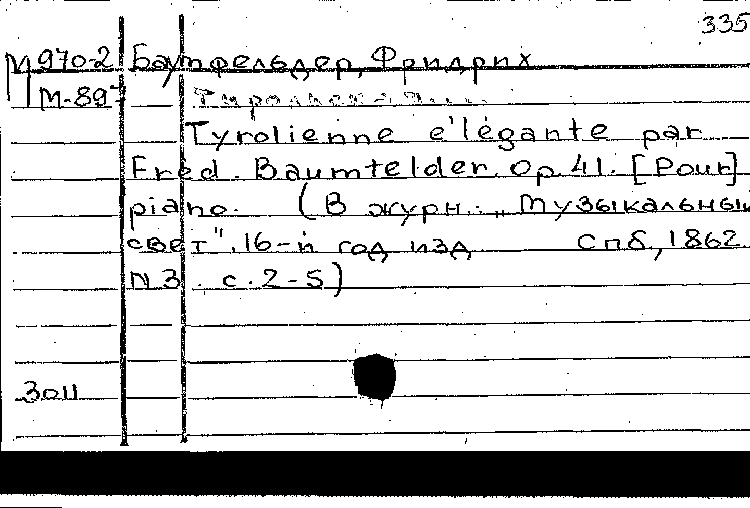 335
М970-2 Баумфельдер, Фридрих
М-897
Tyrolienne e'légante par
Fréd. Baumfelder. Op. 41. [Pour]
piano. (В журн.: „Музыкальный
свет". 16-й год изд СПб, 1862
N 3. с. 2-5)
3011